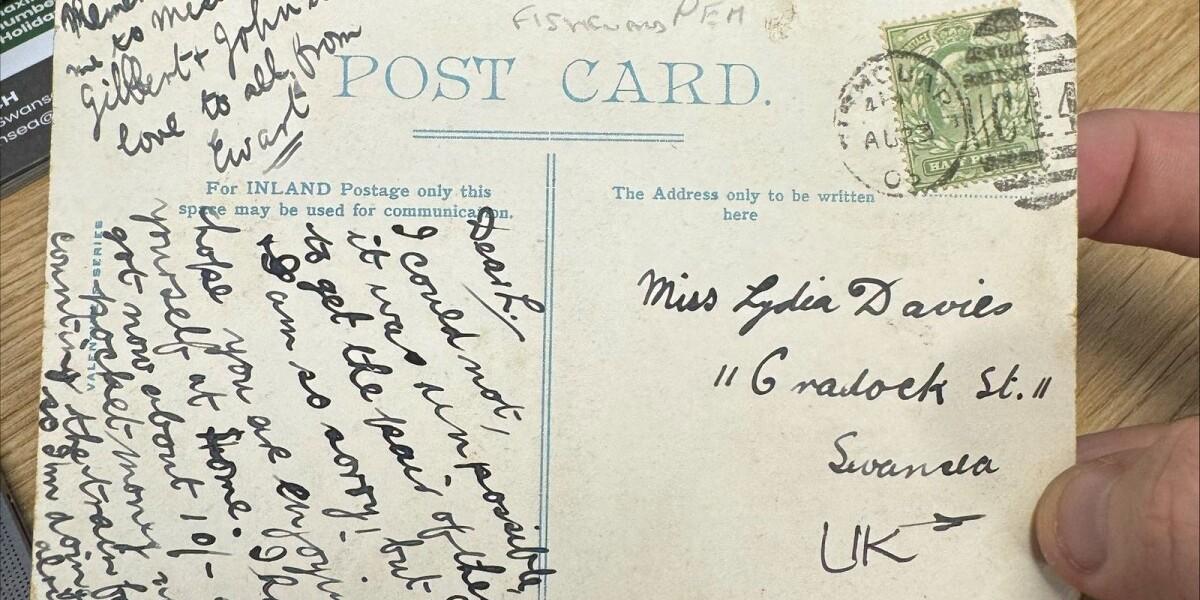 me to
Gilbert + John
love to all from
Ewart
FISHGUARD PEM
POST CARD.
For INLAND Postage only this
space may be used for communication.
The Address only to be written
here
HALFPENNY
AU 23
VALENTINES SERIES
Dear L.,
I could not,
it was un possible,
to get the pair of the
I am so sorry! but
hope you are enjoyin
yourself at Home. I h
got now about 10/-
pocket-money
counting the train f
so I'm doin
Miss Lydia Davies
"6 Cradock St."
Swansea
UK